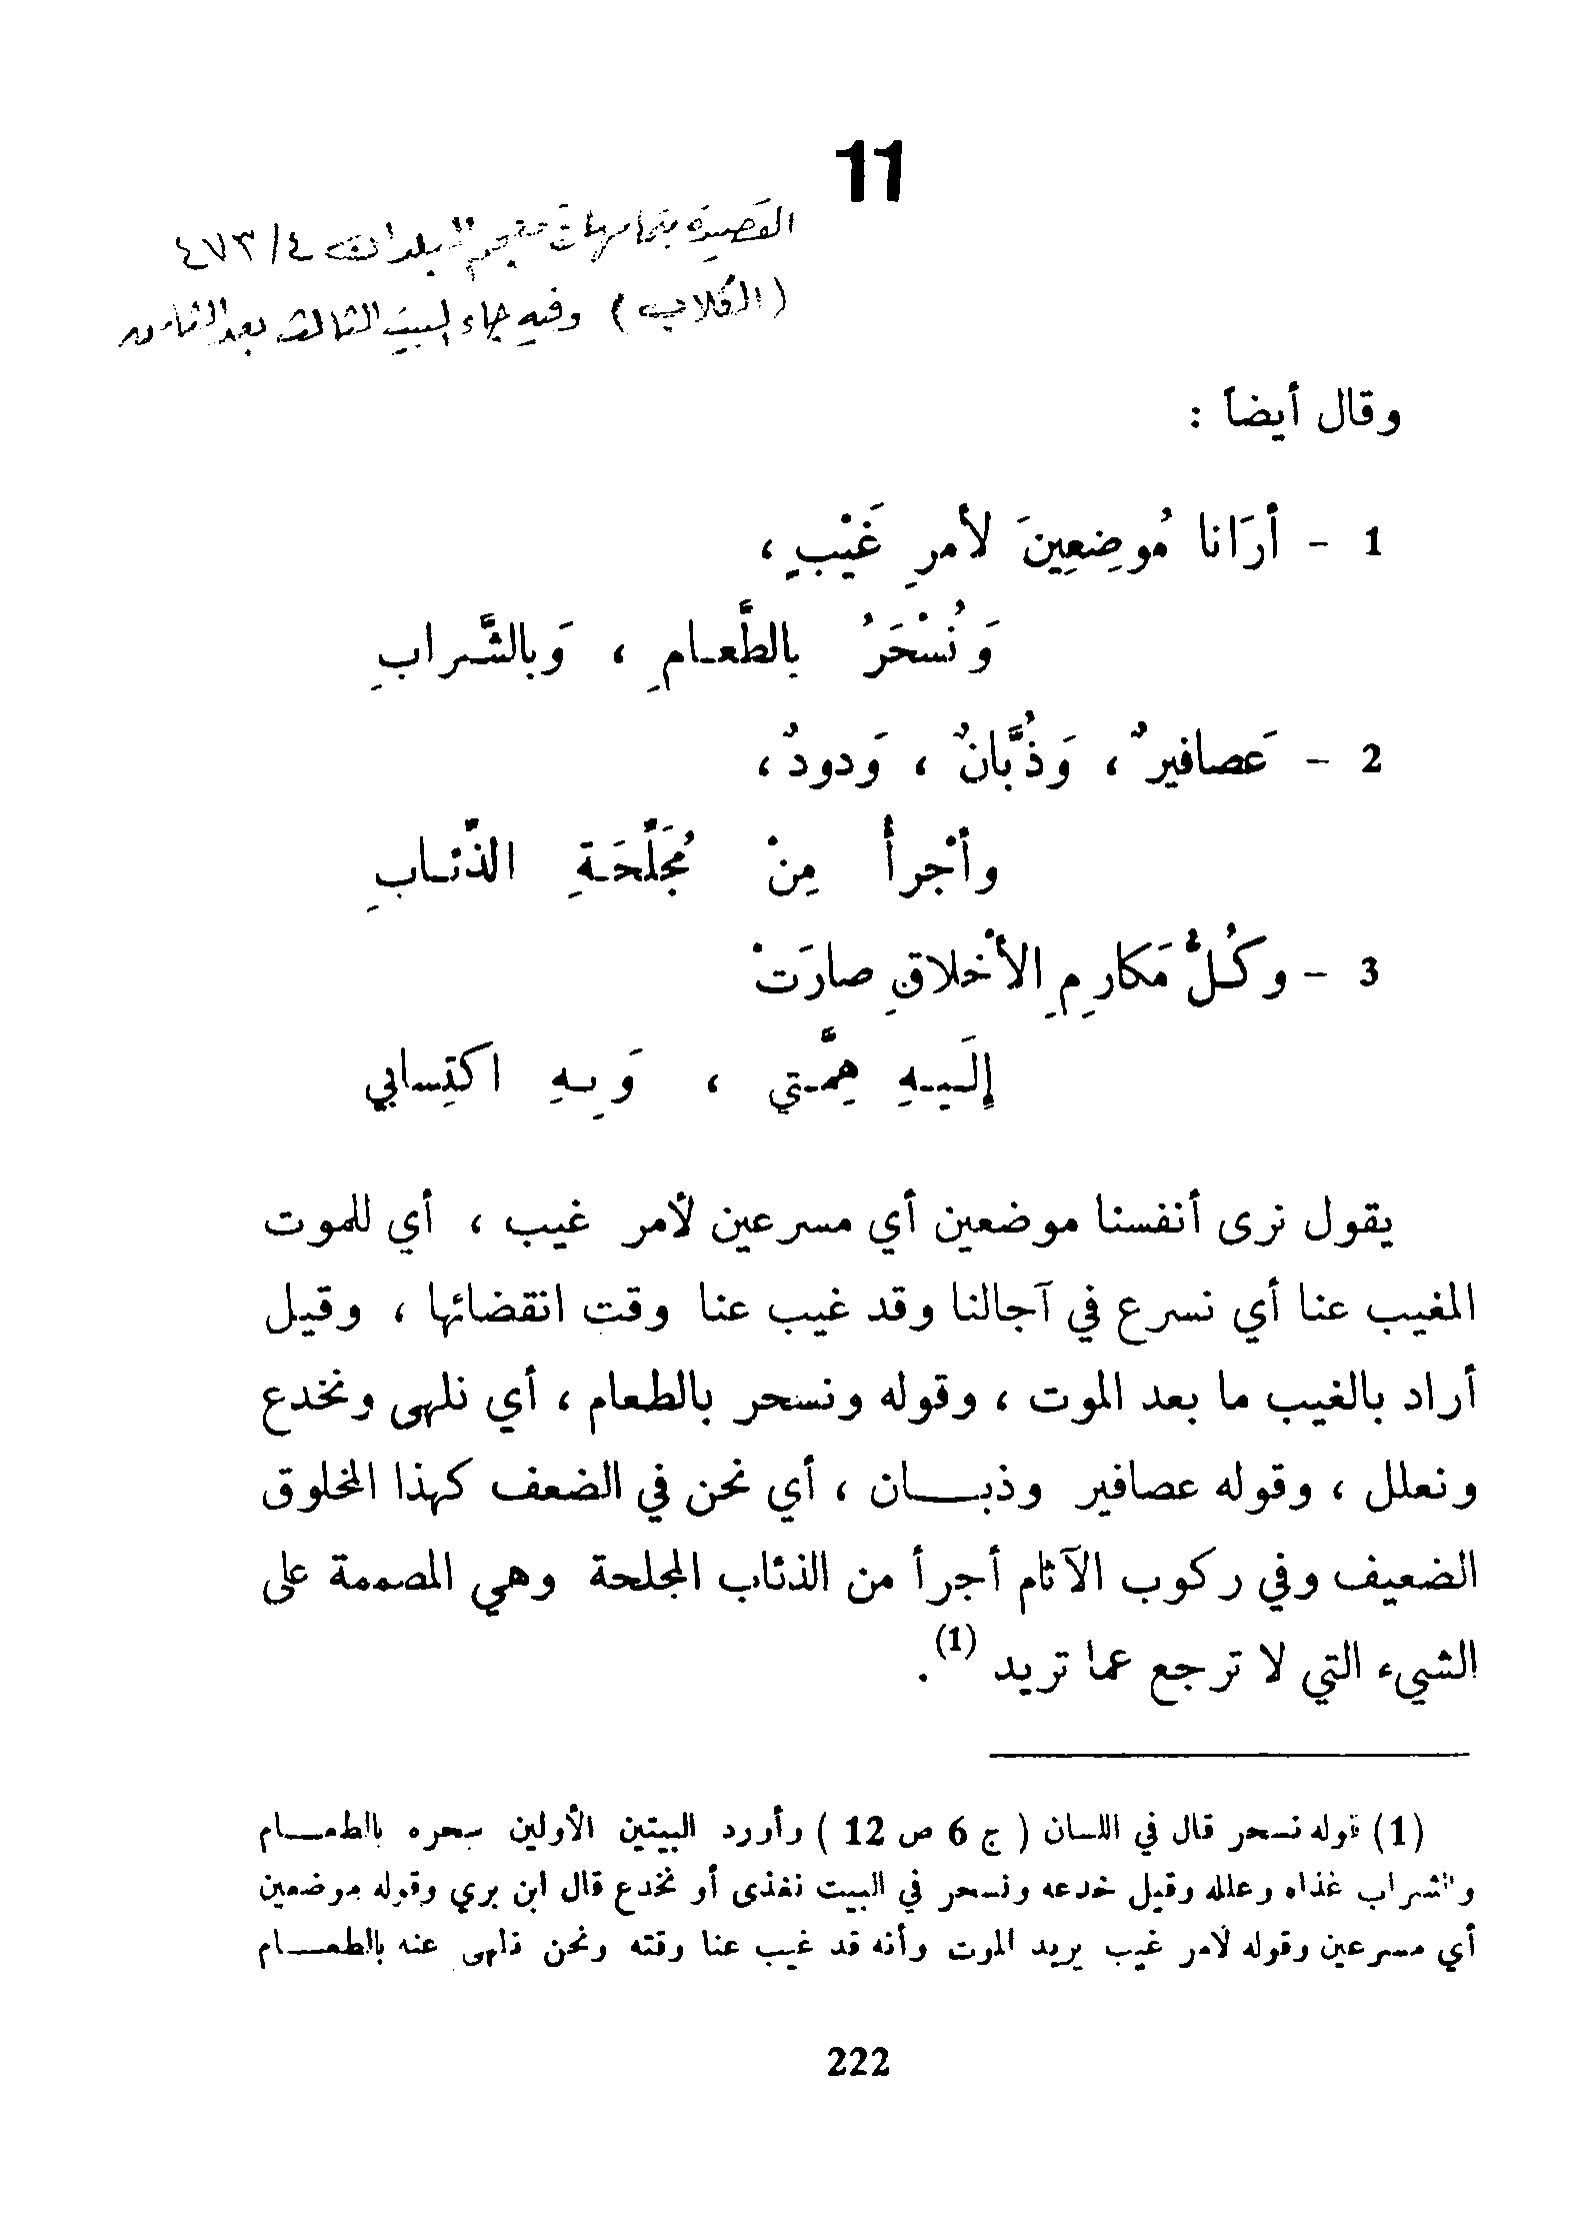 11
القصيدة بتمامها في معجم البلدان ٤/٤٧٣
(الكلاب) وفيه جاء البيت الثالث بعد الثامن
وقال أيضاً :
1 - أرَانا مُوضِعِينَ لأمرِ غَيْبٍ ،
وَنُسْحَرُ بالطَّعـامِ ، وَبالشَّرابِ
2 - عَصافيرٌ ، وَذُبَّانٌ ، وَدودٌ ،
وأجْرأُ مِنْ مُجَلَّحَةِ الذّئـابِ
3 - وكُلُّ مَكارِمِ الأخْلاقِ صارَتْ
إلَيـهِ هِمَّـتي ، وَبِـهِ اكتِسابي
يقول نرى أنفسنا موضعين أي مسرعين لأمر غيب ، أي للموت
المغيب عنا أي نسرع في آجالنا وقد غيب عنا وقت انقضائها ، وقيل
أراد بالغيب ما بعد الموت ، وقوله ونسحر بالطعام ، أي نلهى ونخدع
ونعلل ، وقوله عصافير وذبـــان ، أي نحن في الضعف كهذا المخلوق
الضعيف وفي ركوب الآثام أجرأ من الذئاب المجلحة وهي المصممة على
الشيء التي لا ترجع عما تريد (1).
(1) قوله نسحر قال في اللسان ( ج 6 ص 12 ) وأورد البيتين الأولين سحره بالطعـــام
والشراب غذاه وعلله وقيل خدعه ونسحر في البيت نغذى أو نخدع قال ابن بري وقوله موضعين
أي مسرعين وقوله لأمر غيب يريد الموت وأنه قد غيب عنا وقته ونحن نلهى عنه بالطعـــام
222